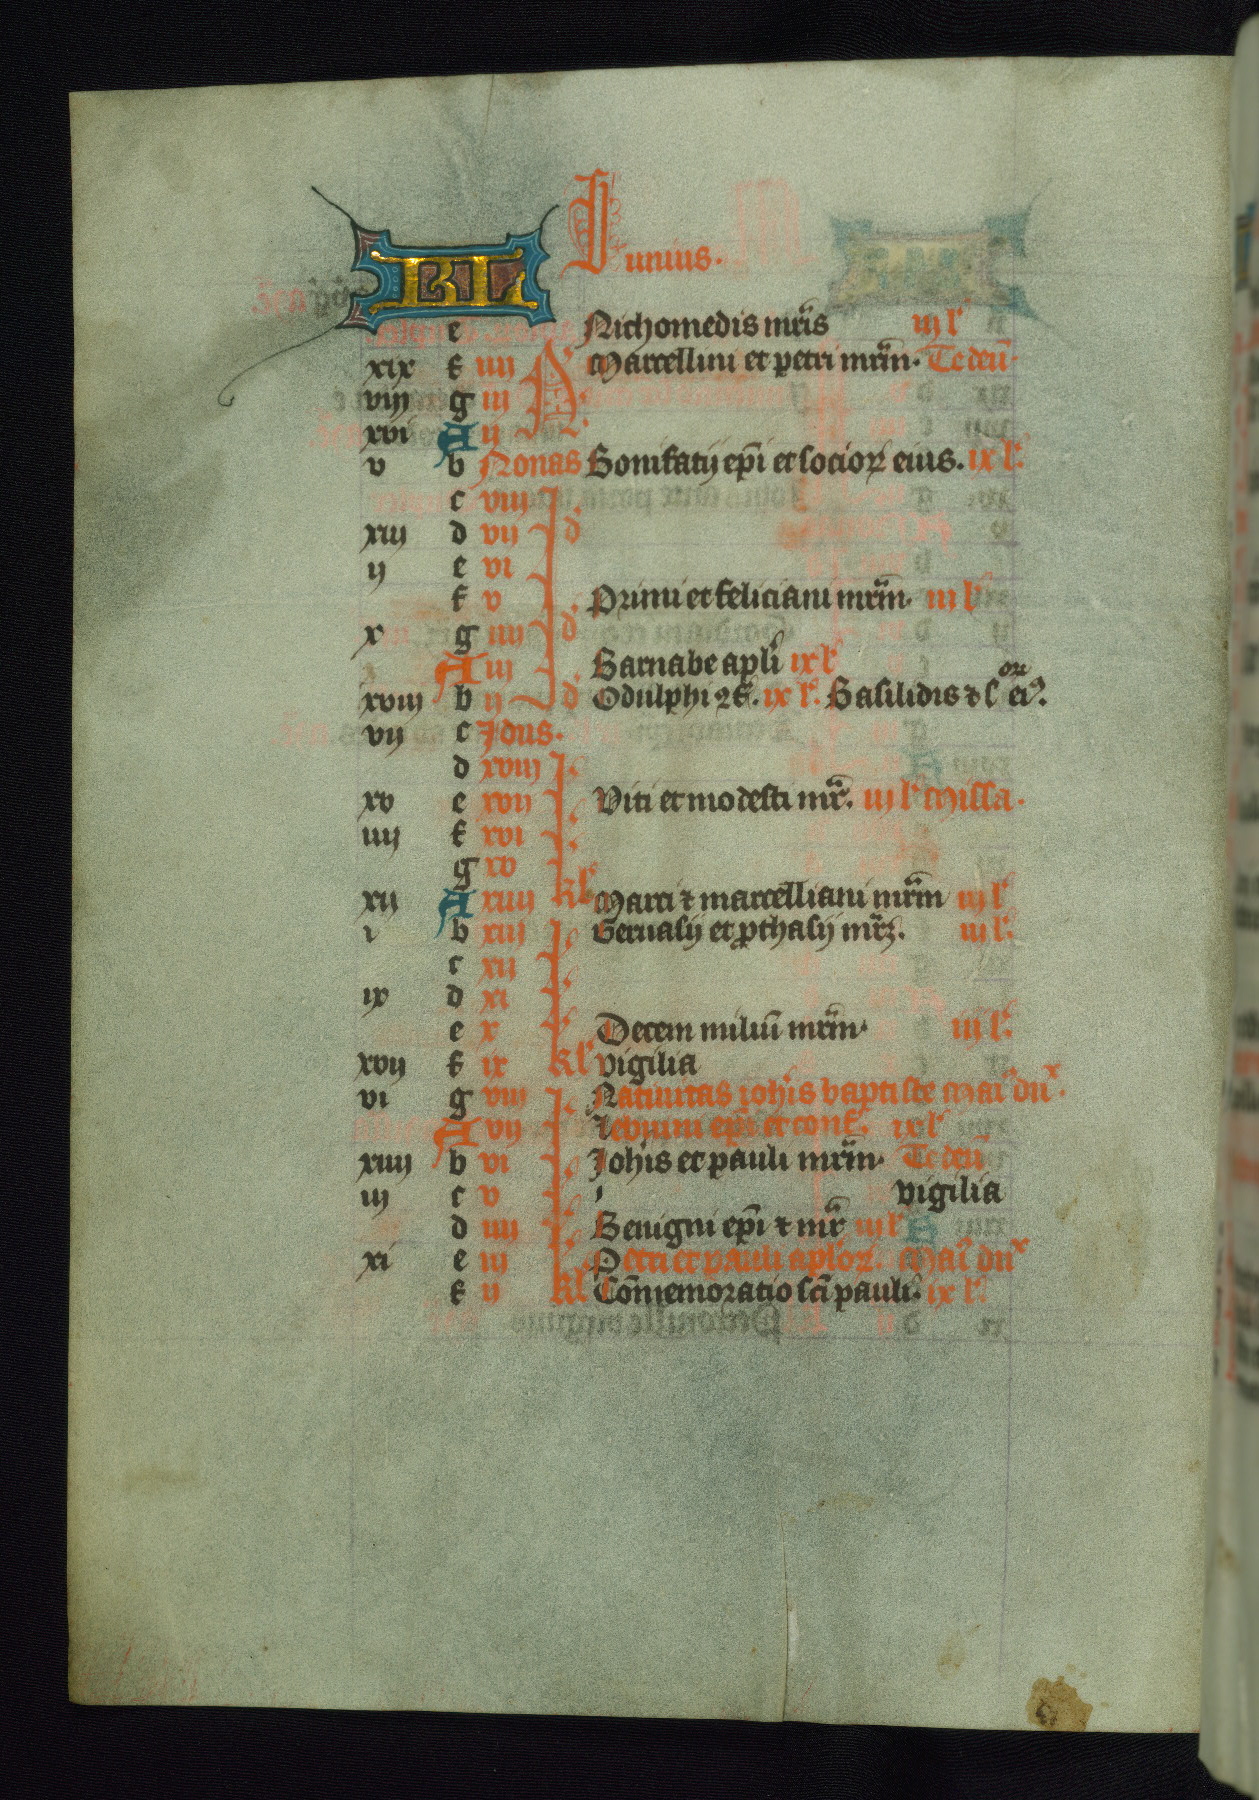 Iunius.
KL
e Nichomedis mr̄is iij l'
xix f iiij N Marcellini et petri mr̄im. Te deū
viij g iij
xvi A ij
v b Nonas Bonifatij ep̄i et socioꝝ eius. ix l'.
c viij I
xiij d vij d
ij e vi
f v Primi et feliciani mr̄im. iij l'
x g iiij d
A iij Barnabe apl'i ix l'
xviij b ij d Odulphi ꝯf. ix l'. Basilidis ⁊ soꝝ ei9.
vij c Jdus.
d xviij
xv e xvij Viti et modesti mr̄. iij l' Missa.
iiij f xvi
g xv
xij A xiiij kl' Marci ⁊ marcelliani mr̄im iij l'
i b xiij Geruasij et ꝓthasij mr̄ꝫ. iij l'.
c xij
ix d xi
e x Decem miliū mr̄im. iij l'.
xvij f ix kl' vigilia
vi g viij Natiuitas ioh'is baptiste Mai' dux.
A vij Lebuini ep̄i et conf. ix l'
xiiij b vi Joh'is et pauli mr̄im. Te deū
iij c v vigilia
d iiij Benigni ep̄i ⁊ mr̄ iij l'
xi e iij Petri et pauli apl'oꝝ. Mai' dux
f ij kl' Cōmemoratio sc̄i pauli. ix l'.